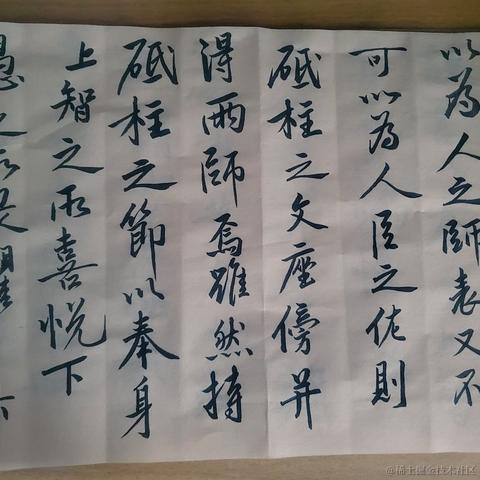 以為人之師表又不
可以為人臣之佐則
砥柱之文座傍并
得兩師焉雖然持
砥柱之節以奉身
上智之所喜悅下
愚之所
@稀土掘金技术社区